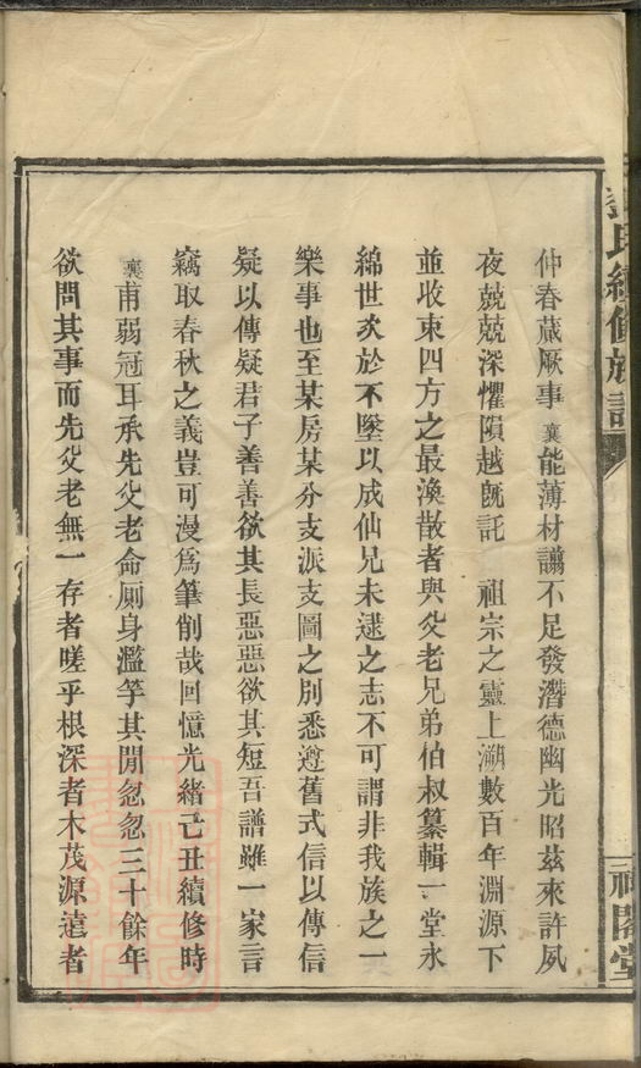 氏續修族譜
禰閣堂
仲春蕆厥事襄能薄材譾不足發潛德幽光昭茲來許夙
夜兢兢深懼隕越旣託 祖宗之靈上溯數百年淵源下
並收束四方之最渙散者與父老兄弟伯叔纂輯一堂永
綿世次於不墜以成仙兄未逮之志不可謂非我族之一
樂事也至某房某分支派支圖之別悉遵舊式信以傳信
疑以傳疑君子善善欲其長惡惡欲其短吾譜雖一家言
竊取春秋之義豈可漫爲筆削哉回憶光緒己丑續修時
襄甫弱冠耳承先父老命厠身濫竽其閒忽忽三十餘年
欲問其事而先父老無一存者嗟乎根深者木茂源遠者